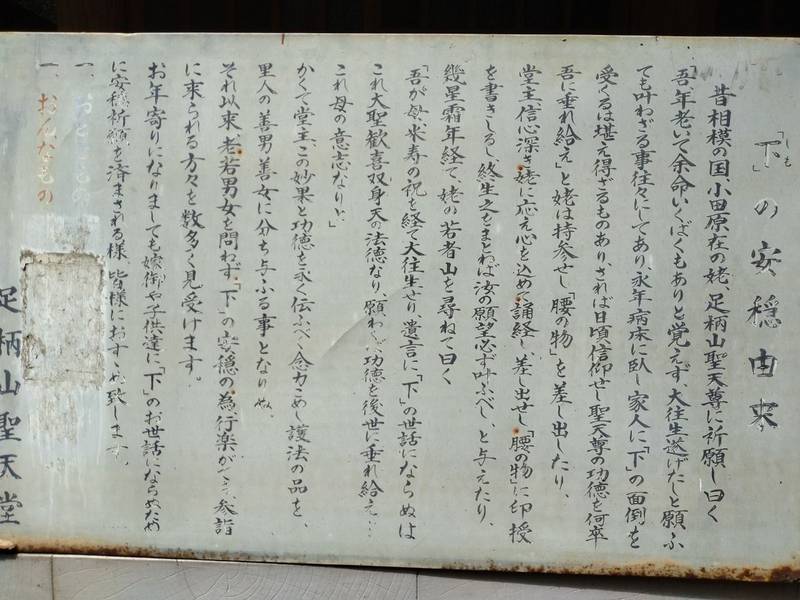 「下」の安穏由来
しも
昔相模の国、小田原在の姥、足柄山聖天尊に祈願し曰く
「吾年老いて余命いくばくもありと覚えず、大往生遂げたしと願ふ
ても叶わざる事往々にしてあり、永年病床に臥し家人に「下」の面倒を
受くるは堪え得ざるものあり、されば日頃信仰せし聖天尊の功徳を何卒
吾に垂れ給え」と姥は持参せし「腰の物」を差し出したり、
堂主、信心深き姥に応え心を込めて誦経し、差し出せし「腰の物」に印授
を書きしるし、終生之をまとわば汝の願望必ず叶ふべし、と与えたり、
幾星霜年経て、姥の若者山を尋ねて曰く
「吾が母、米寿の祝を経て大往生せり、遺言に「下」の世話にならぬは
これ大聖歓喜双身天の法徳なり、願わくば功徳を後世に垂れ給え…
これ母の意志なりと」
かくて堂主、この妙果と功徳を永く伝ふべく念力こめし護法の品を、
里人の善男善女に分ち与ふる事となりぬ、
それ以来、老若男女を問わず、「下」の安穏の為、行楽がてら、参詣
に来られる方々を数多く見受けます。
お年寄りになりましても嫁御や子供達に、「下」のお世話にならぬため
に安穏祈願を済まされる様、皆様におすすめ致します。
一、おと の
一、おんなもの
足柄山聖天堂